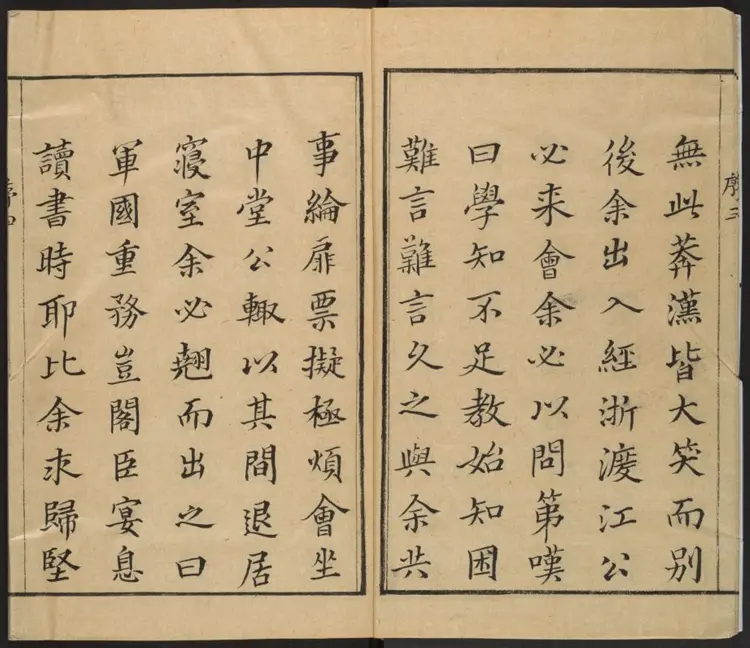 序三
無此莽漢皆大笑而別
後余出入經浙渡江公
必来會余必以問第嘆
曰學知不足教始知困
難言難言久之與余共
事綸扉票擬極煩會坐
中堂公輙以其間退居
寢室余必翹而出之曰
軍國重務豈閣臣宴息
讀書時耶比余求歸堅
序四